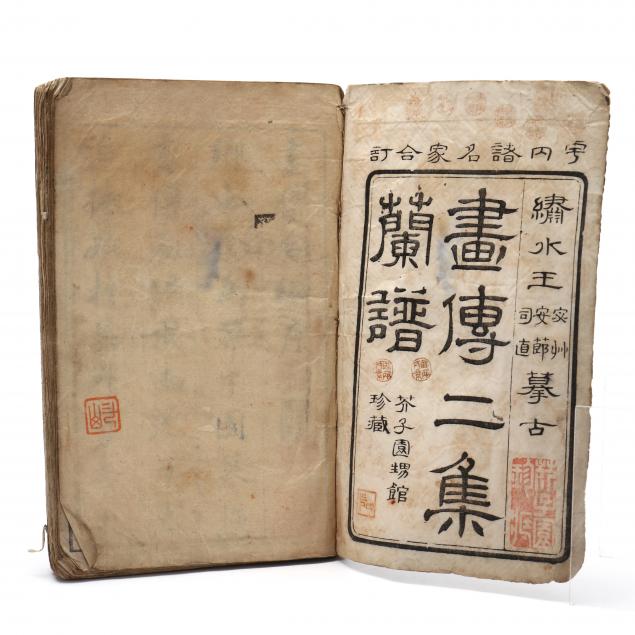 宇内諸名家合訂
繡水王宓艸安節司直摹古
畫傳二集
蘭譜
芥子園甥館
珍藏